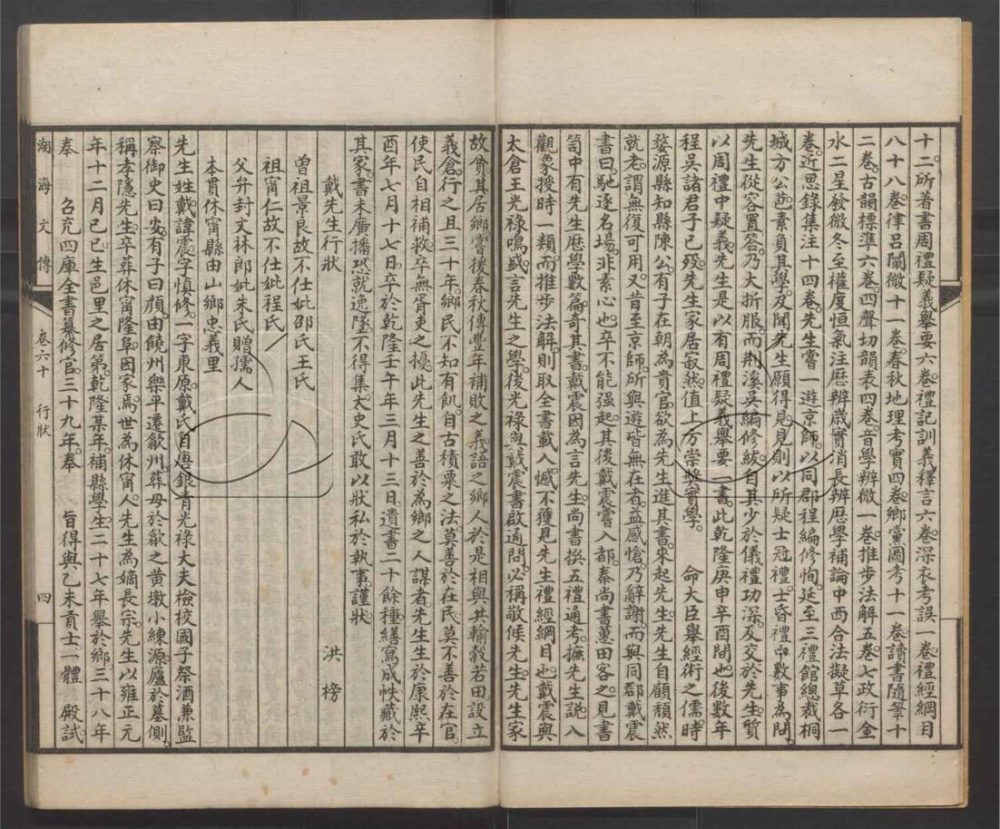 十二所著書周禮疑義舉要六卷禮記訓義釋言六卷深衣考誤一卷禮經綱目
八十八卷律呂闡微十一卷春秋地理考實四卷鄉黨圖考十一卷讀書隨筆十
二卷古韻標準六卷四聲切韻表四卷音學辨微一卷推步法解五卷七政衍金
水二星發微冬至權度恒氣注厯辨歲實消長辨厯學補論中西合法擬草各一
卷近思錄集注十四卷先生嘗一遊京師以同郡程編修恂延至三禮館總裁桐
城方公苞素負其學及聞先生願得見見則以所疑士冠禮士昏禮中數事為問
先生從容置答乃大折服而荆溪吳編修紱自其少於儀禮功深及交於先生質
以周禮中疑義先生是以有周禮疑義舉要一書此乾隆庚申辛酉間也後數年
程吳諸君子已歿先生家居寂然值上方崇獎實學 命大臣舉經術之儒時
婺源縣知縣陳公有子在朝為貴官欲為先生進其書來起先生先生自顧頹然
就老謂無復可用又昔至京師所與遊皆無在者益感愴乃辭謝而與同郡戴震
書曰馳逐名場非素心也卒不能强起其後戴震嘗入都秦尚書蕙田客之見書
笥中有先生厯學數篇奇其書戴震因為言先生尚書撰五禮通考摭先生說入
觀象授時一類而推步法解則取全書載入憾不獲見先生禮經綱目也戴震與
太倉王光祿鳴盛言先生之學後光祿與戴震書啟通問必稱敬候先生先生家
故貧其居鄉嘗援春秋傳豐年補敗之義語之鄉人於是相與共輸穀若田設立
義倉行之且三十年鄉民不知有飢自古積粟之法莫善於在民莫不善於在官
使民自相補救卒無胥吏之擾此先生之善於為鄉之人謀者先生生於康熙辛
酉年七月十七日卒於乾隆壬午年三月十三日遺書二十餘種繕寫成帙藏於
其家書未廣播恐就逸墜不得集太史氏敢以狀私於執事謹狀
戴先生行狀 洪榜
曾祖景良故不仕妣邵氏王氏
祖甯仁故不仕妣程氏
父弁封文林郎妣朱氏贈孺人
本貫休甯縣由山鄉忠義里
先生姓戴諱震字慎修一字東原戴氏自唐銀青光祿大夫檢校國子祭酒兼監
察御史曰安有子曰顏由饒州樂平遷歙州葬母於歙之黄墩小練源廬於墓側
稱孝隱先生卒葬休甯隆阜因家焉世為休甯人先生為嫡長宗先生以雍正元
年十二月己巳生邑里之居第乾隆某年補縣學生二十七年舉於鄉三十八年
奉 召充四庫全書纂修官三十九年奉 旨得與乙未貢士一體 殿試
湖海文傳 卷六十 行狀 四